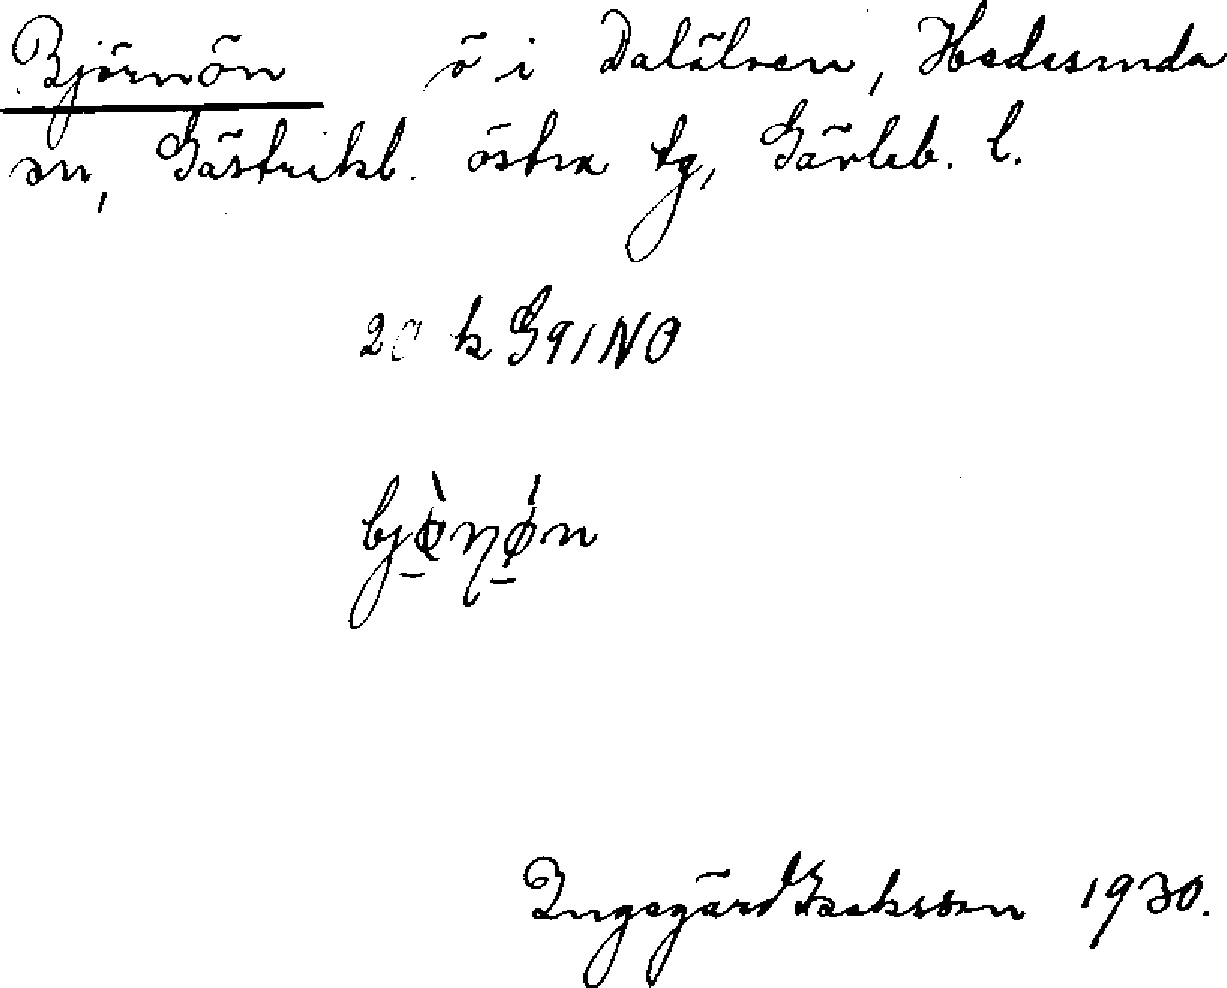 Björnön ö i Dalälven, Hedesunda
sn, Gästrikl. östra tg, Gävleb. l.
20 k G91NO
bjò̱ŋǿ̱n
Ingegärd Isaksson 1930.